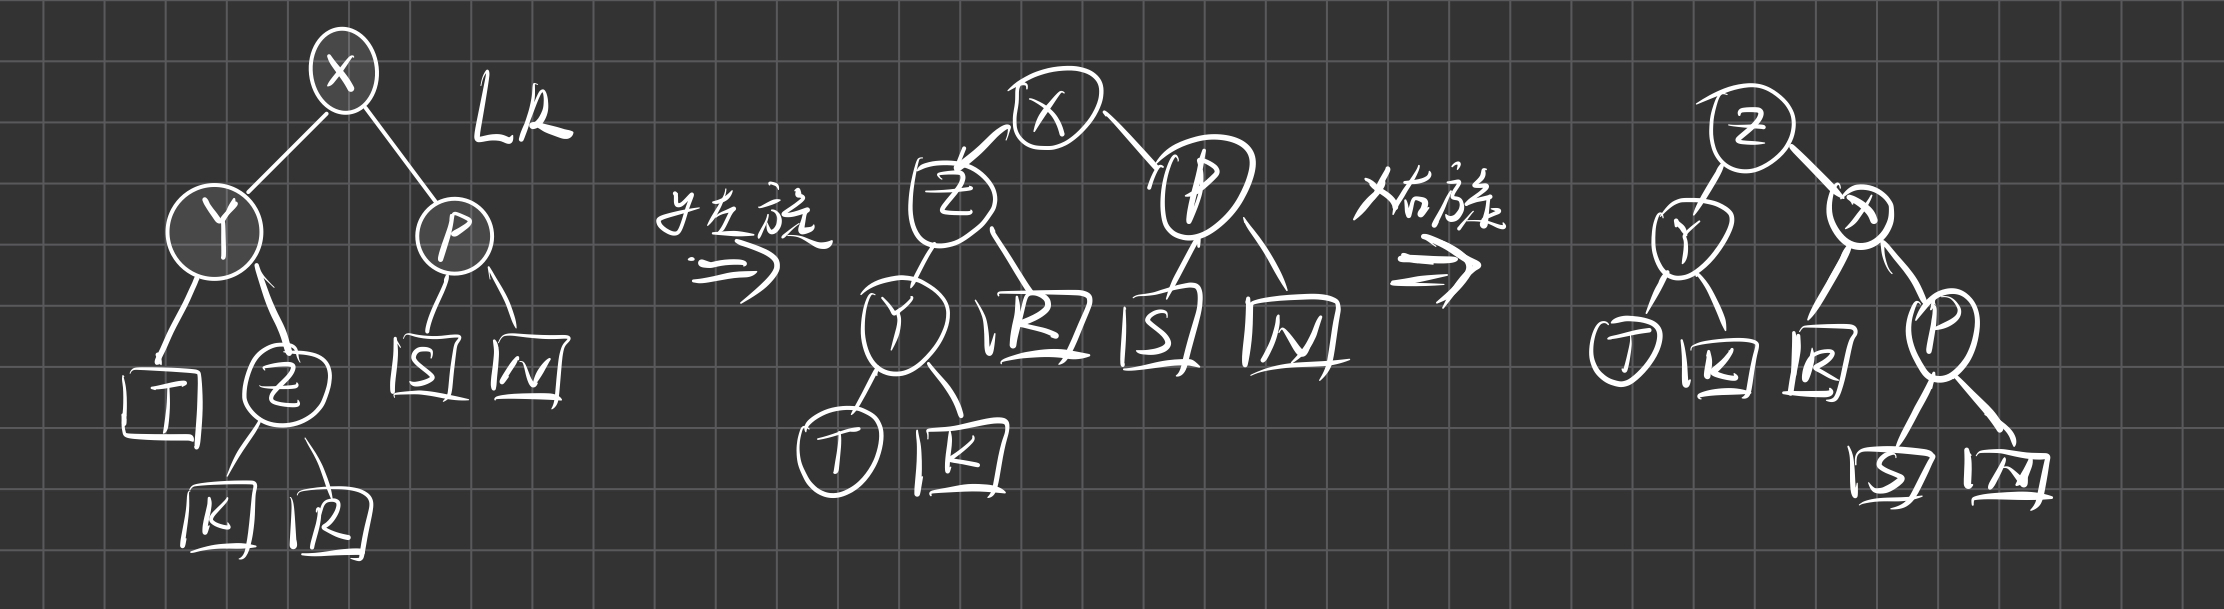 X
LR
Y
P
T
Z
S
N
K
R
y左旋
X
Z
P
Y
R
S
N
T
K
X右旋
Z
Y
X
T
K
R
P
S
N